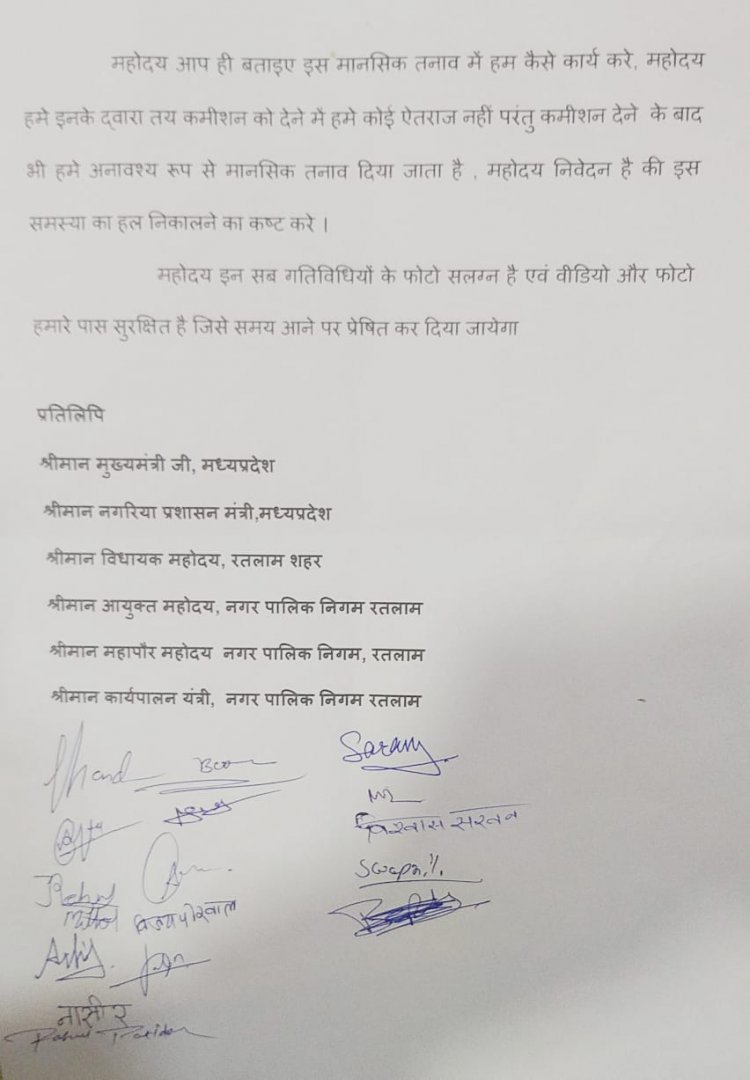 महोदय आप ही बताइए इस मानसिक तनाव में हम कैसे कार्य करे, महोदय
हमे इनके द्वारा तय कमीशन को देने में हमे कोई ऐतराज नहीं परंतु कमीशन देने के बाद
भी हमे अनावश्य रूप से मानसिक तनाव दिया जाता है , महोदय निवेदन है की इस
समस्या का हल निकालने का कष्ट करे ।
महोदय इन सब गतिविधियों के फोटो सलग्न है एवं वीडियो और फोटो
हमारे पास सुरक्षित है जिसे समय आने पर प्रेषित कर दिया जायेगा
प्रतिलिपि
श्रीमान मुख्यमंत्री जी, मध्यप्रदेश
श्रीमान नगरिया प्रशासन मंत्री,मध्यप्रदेश
श्रीमान विधायक महोदय, रतलाम शहर
श्रीमान आयुक्त महोदय, नगर पालिक निगम रतलाम
श्रीमान महापौर महोदय नगर पालिक निगम, रतलाम
श्रीमान कार्यपालन यंत्री, नगर पालिक निगम रतलाम
विजय पोरवाल
नासीर